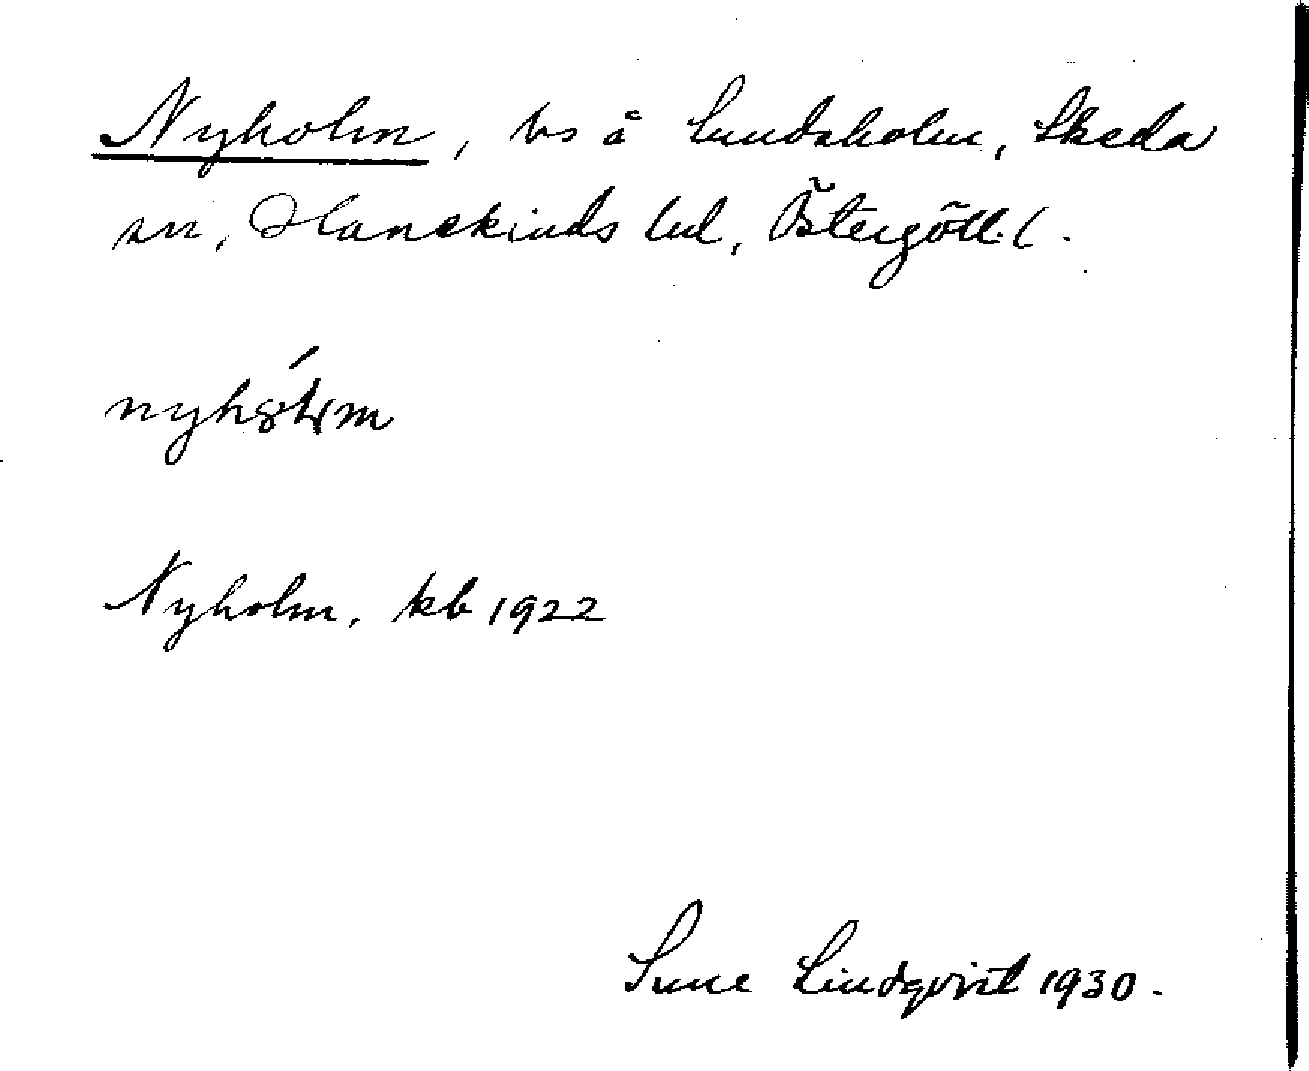 Nyholm, bs å Lundsholm, Skeda
sn, Hanekinds hd, Östergötl. l.
Nyholm, kb 1922
Sune Lindqvist 1930.